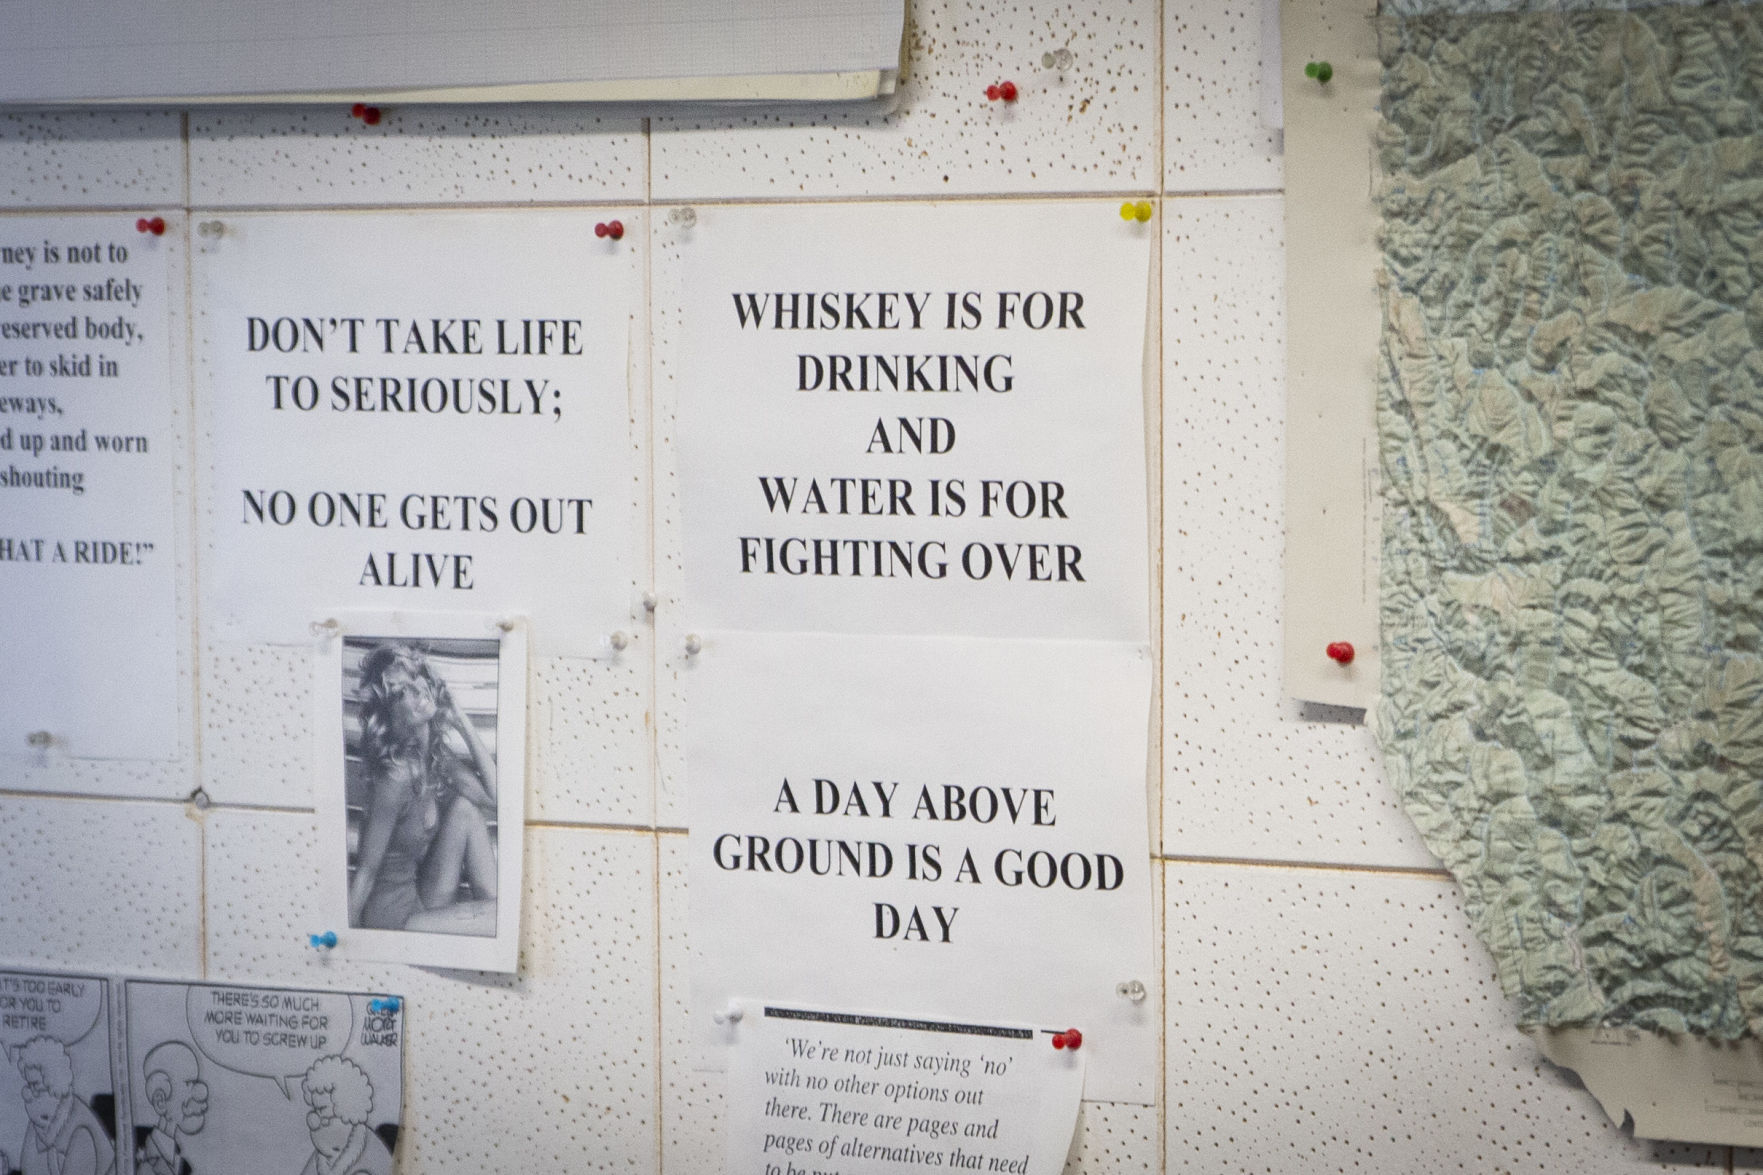 ney is not to
e grave safely
eserved body,
er to skid in
eways,
d up and worn
shouting
HAT A RIDE!”
DON’T TAKE LIFE
TO SERIOUSLY;
NO ONE GETS OUT
ALIVE
WHISKEY IS FOR
DRINKING
AND
WATER IS FOR
FIGHTING OVER
A DAY ABOVE
GROUND IS A GOOD
DAY
IT'S TOO EARLY
FOR YOU TO
RETIRE
THERE'S SO MUCH
MORE WAITING FOR
YOU TO SCREW UP
WALKER
‘We’re not just saying ‘no’
with no other options out
there. There are pages and
pages of alternatives that need
to be